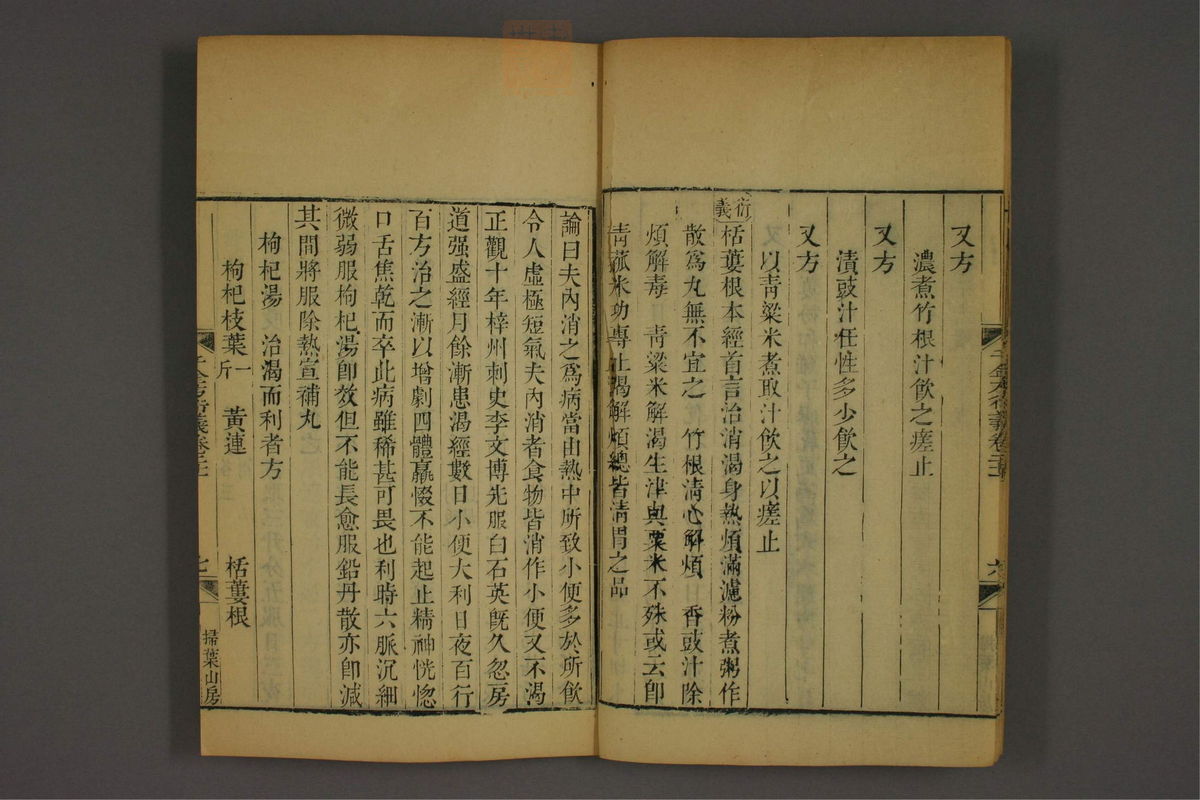 又方
濃煮竹根汁飲之瘥止
又方
漬豉汁任性多少飲之
又方
以青粱米煮取汁飲之以瘥止
衍義
栝蔞根本經首言治消渴身熱煩滿濾粉煮粥作
散爲丸無不宜之 竹根清心解煩 香豉汁除
煩解毒 青粱米解渴生津與粟米不殊或云卽
青菰米功專止渴解煩總皆清胃之品
千金方衍義卷二十一
六
論曰夫內消之爲病當由熱中所致小便多於所飲
令人虛極短氣夫內消者食物皆消作小便又不渴
正觀十年梓州刺史李文博先服白石英旣久忽房
道强盛經月餘漸患渴經數日小便大利日夜百行
百方治之漸以增劇四體羸惙不能起止精神恍惚
口舌焦乾而卒此病雖稀甚可畏也利時六脈沉細
微弱服枸杞湯卽效但不能長愈服鉛丹散亦卽減
其間將服除熱宣補丸
枸杞湯 治渴而利者方
枸杞枝葉一斤 黃連 栝蔞根
千金方衍義卷二十一
七
掃葉山房